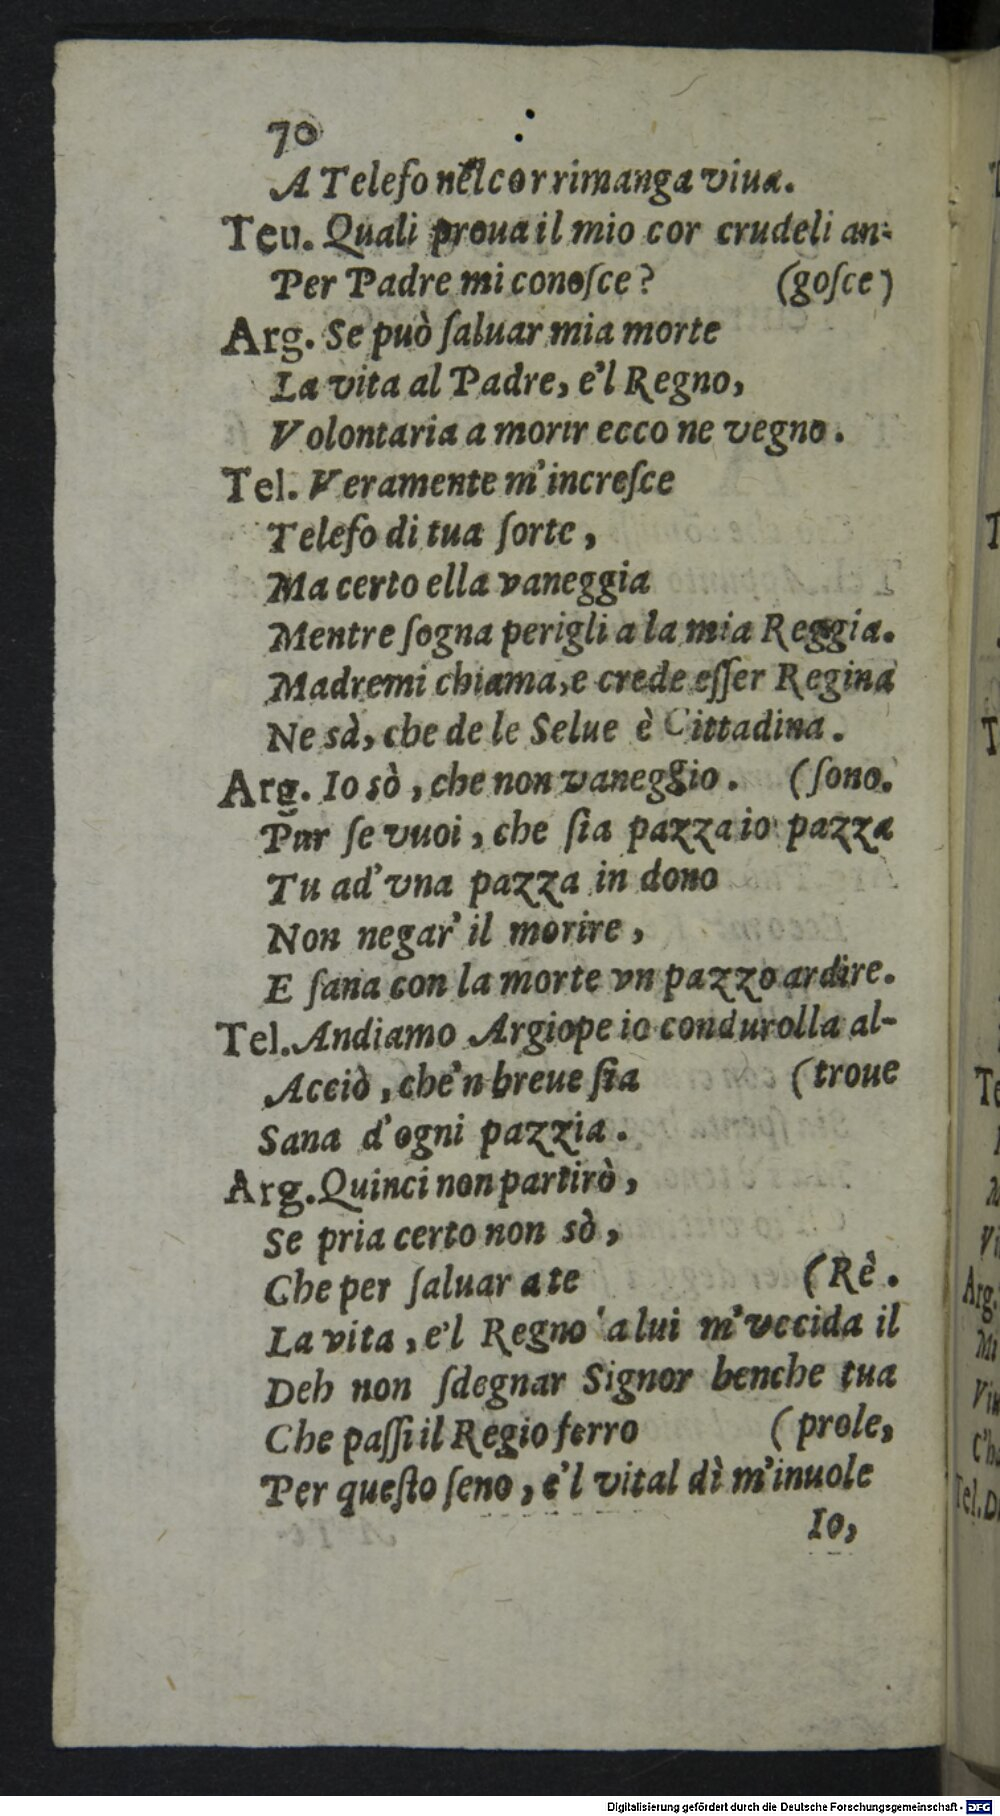 70
A Telefo nel cor rimanga viua.
Teu. Quali proua il mio cor crudeli an-
Per Padre mi conoſce? (goſce)
Arg. Se può ſaluar mia morte
La vita al Padre, e'l Regno,
Volontaria a morir ecco ne vegno.
Tel. Veramente m'increſce
Telefo di tua ſorte,
Ma certo ella vaneggia
Mentre ſogna perigli a la mia Reggia.
Madre mi chiama, e crede eſſer Regina
Ne sà, che de le Selue è Cittadina.
Arg. Io sò, che non vaneggio. (ſono.
Pur ſe vuoi, che ſia pazza io pazza
Tu ad' vna pazza in dono
Non negar' il morire,
E ſana con la morte vn pazzo ardire.
Tel. Andiamo Argiope io condurolla al-
Acciò, che'n breue ſia (troue
Sana d'ogni pazzia.
Arg. Quinci non partirò,
Se pria certo non sò,
Che per ſaluar a te (Rè.
La vita, e'l Regno a lui m'vccida il
Deh non ſdegnar Signor benche tua
Che paſſi il Regio ferro (prole,
Per queſto ſeno, e'l vital dì m'inuole
Io,
Digitalisierung gefördert durch die Deutsche Forschungsgemeinschaft - DFG